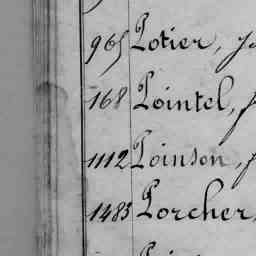 965 Potier,
168 Pointel,
1112 Poinson,
1483 Porcher,